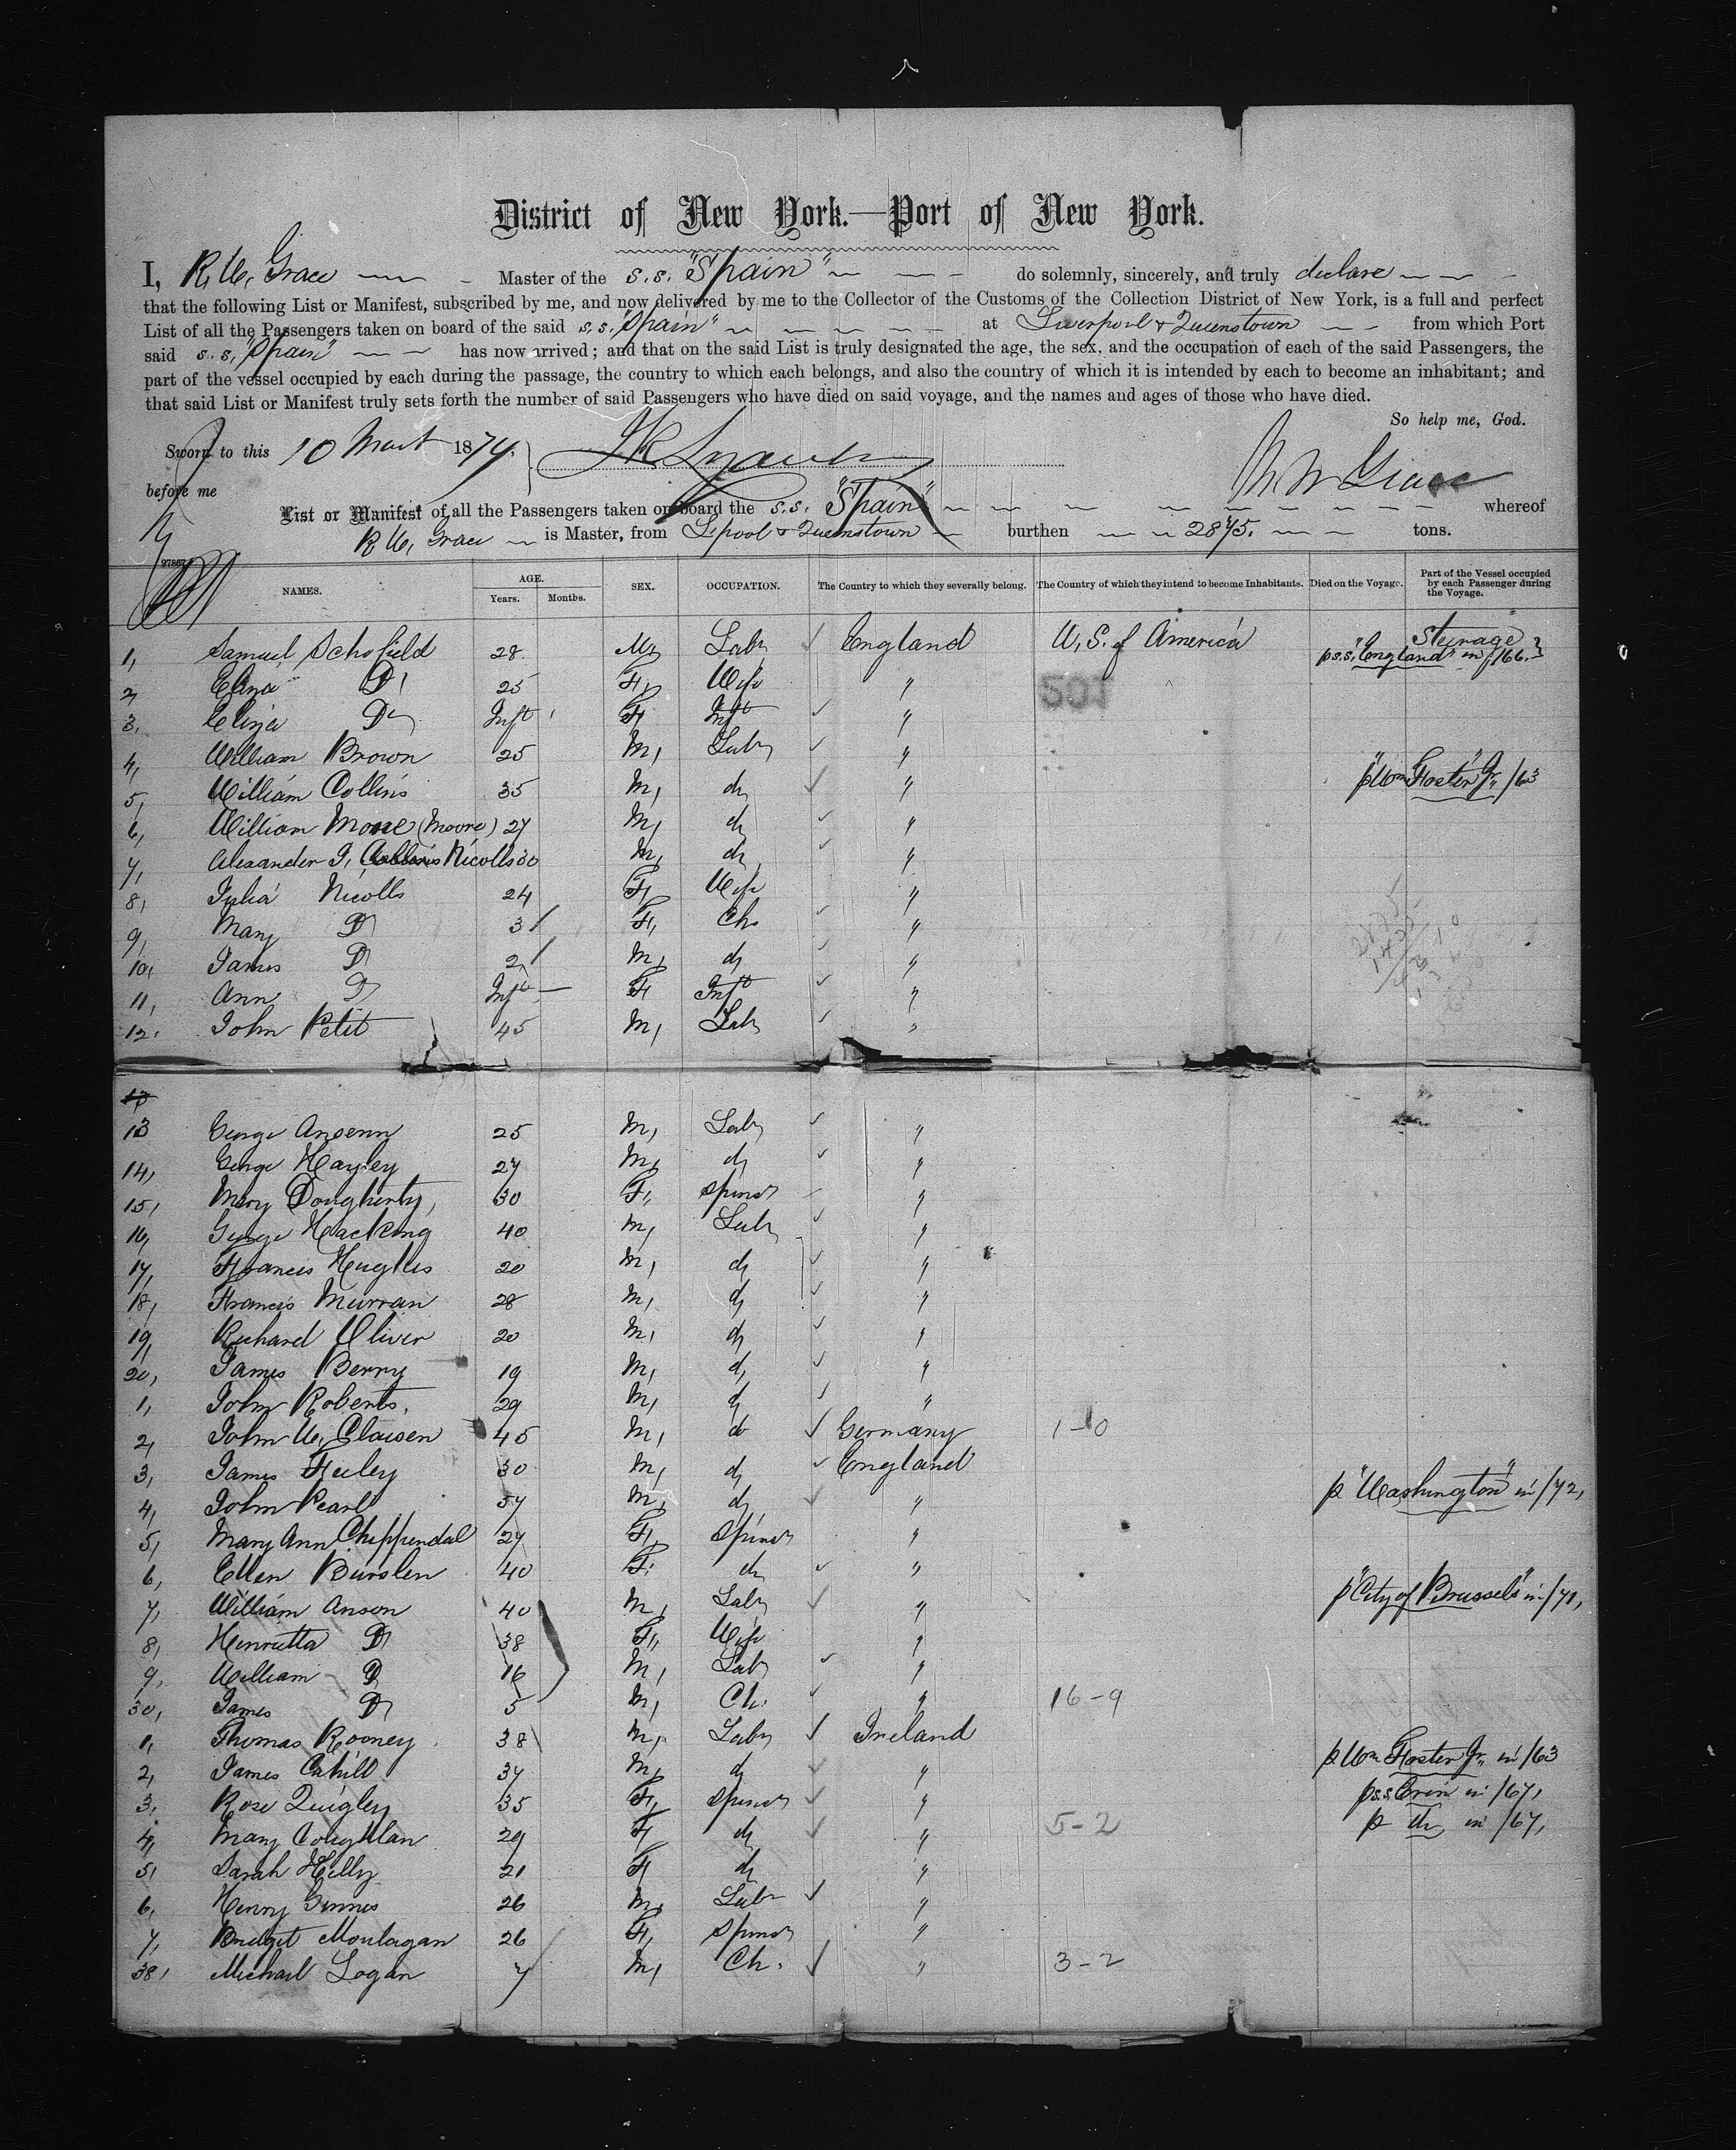 District of New York.—Port of New York.
I, R. W. Grace Master of the s.s. "Spain" do solemnly, sincerely, and truly declare
that the following List or Manifest, subscribed by me, and now delivered by me to the Collector of the Customs of the Collection District of New York, is a full and perfect
List of all the Passengers taken on board of the said s.s. "Spain" at Liverpool & Queenstown from which Port
said s.s. "Spain" has now arrived; and that on the said List is truly designated the age, the sex, and the occupation of each of the said Passengers, the
part of the vessel occupied by each during the passage, the country to which each belongs, and also the country of which it is intended by each to become an inhabitant; and
that said List or Manifest truly sets forth the number of said Passengers who have died on said voyage, and the names and ages of those who have died.
So help me, God.
Sworn to this 10 1874. Grace
before me
List or Manifest of all the Passengers taken on board the s.s. "Spain" whereof
R. W. Grace is Master, from L'pool & Queenstown burthen 2875. tons.
97867
NAMES. AGE. Years. Months. SEX. OCCUPATION. The Country to which they severally belong. The Country of which they intend to become Inhabitants. Died on the Voyage. Part of the Vessel occupied by each Passenger during the Voyage.
1, Samuel Schofield 28 M, Labr England U.S. of America Steerage
p s.s. "England" in /66.
2, Eliza Do 25 F, Wife "
501
3, Eliza Do Inft F Inft "
4, William Brown 25 M, Labr "
5, William Collins 35 M, do " p "Wm Foster Jr." /63
6, William Mone (Moore) 27 M, do "
7, Alexander J, Nicolls 30 M, do "
8, Julia Nicolls 24 F, Wife "
9, Mary Do 3 F, Ch. "
10, James Do 2 M, do "
11, Ann Do Inft F Inft "
12, John Petit 45 M, Labr "
13 George Ansenn 25 M, Labr "
14, George Hayley 27 M, do "
15, Mary Dougherty, 30 F, Spinsr "
16, George Hacking 40 M, Labr "
17, Francis Hughes 20 M, do "
18, Francis Murran 28 M, do "
19, Richard Oliver 20 M, do "
20, James Berry 19 M, do "
1, John Roberts, 29 M, do "
2, John W, Clausen 45 M, do Germany 1-0
3, James Feeley 30 M, do England
4, John Pearl 57 M, do " p "Washington" in /72,
5, Mary Ann Chippendal 27 F, Spinsr "
6, Ellen Burslen 40 F. do "
7, William Anson 40 M, Labr " p "City of Brussels" in /71,
8, Henrietta Do 38 F, Wife "
9, William Do 16 M, Labr "
30, James Do 5 M, Ch. " 16-9
1, Thomas Rooney 38 M, Labr Ireland
2, James Cahill 37 M, do " p Wm Foster Jr. in /63
3, Rose Quigley 35 F, Spinsr " p s.s. Erin in /67,
4, Mary Coughlan 29 F do " 5-2 p do in /67,
5, Sarah Helly 21 F do "
6, Henry Ginnes 26 M, Labr "
7, Bridget Moulagan 26 F, Spinsr "
38, Michael Logan 7 M, Ch. " 3-2